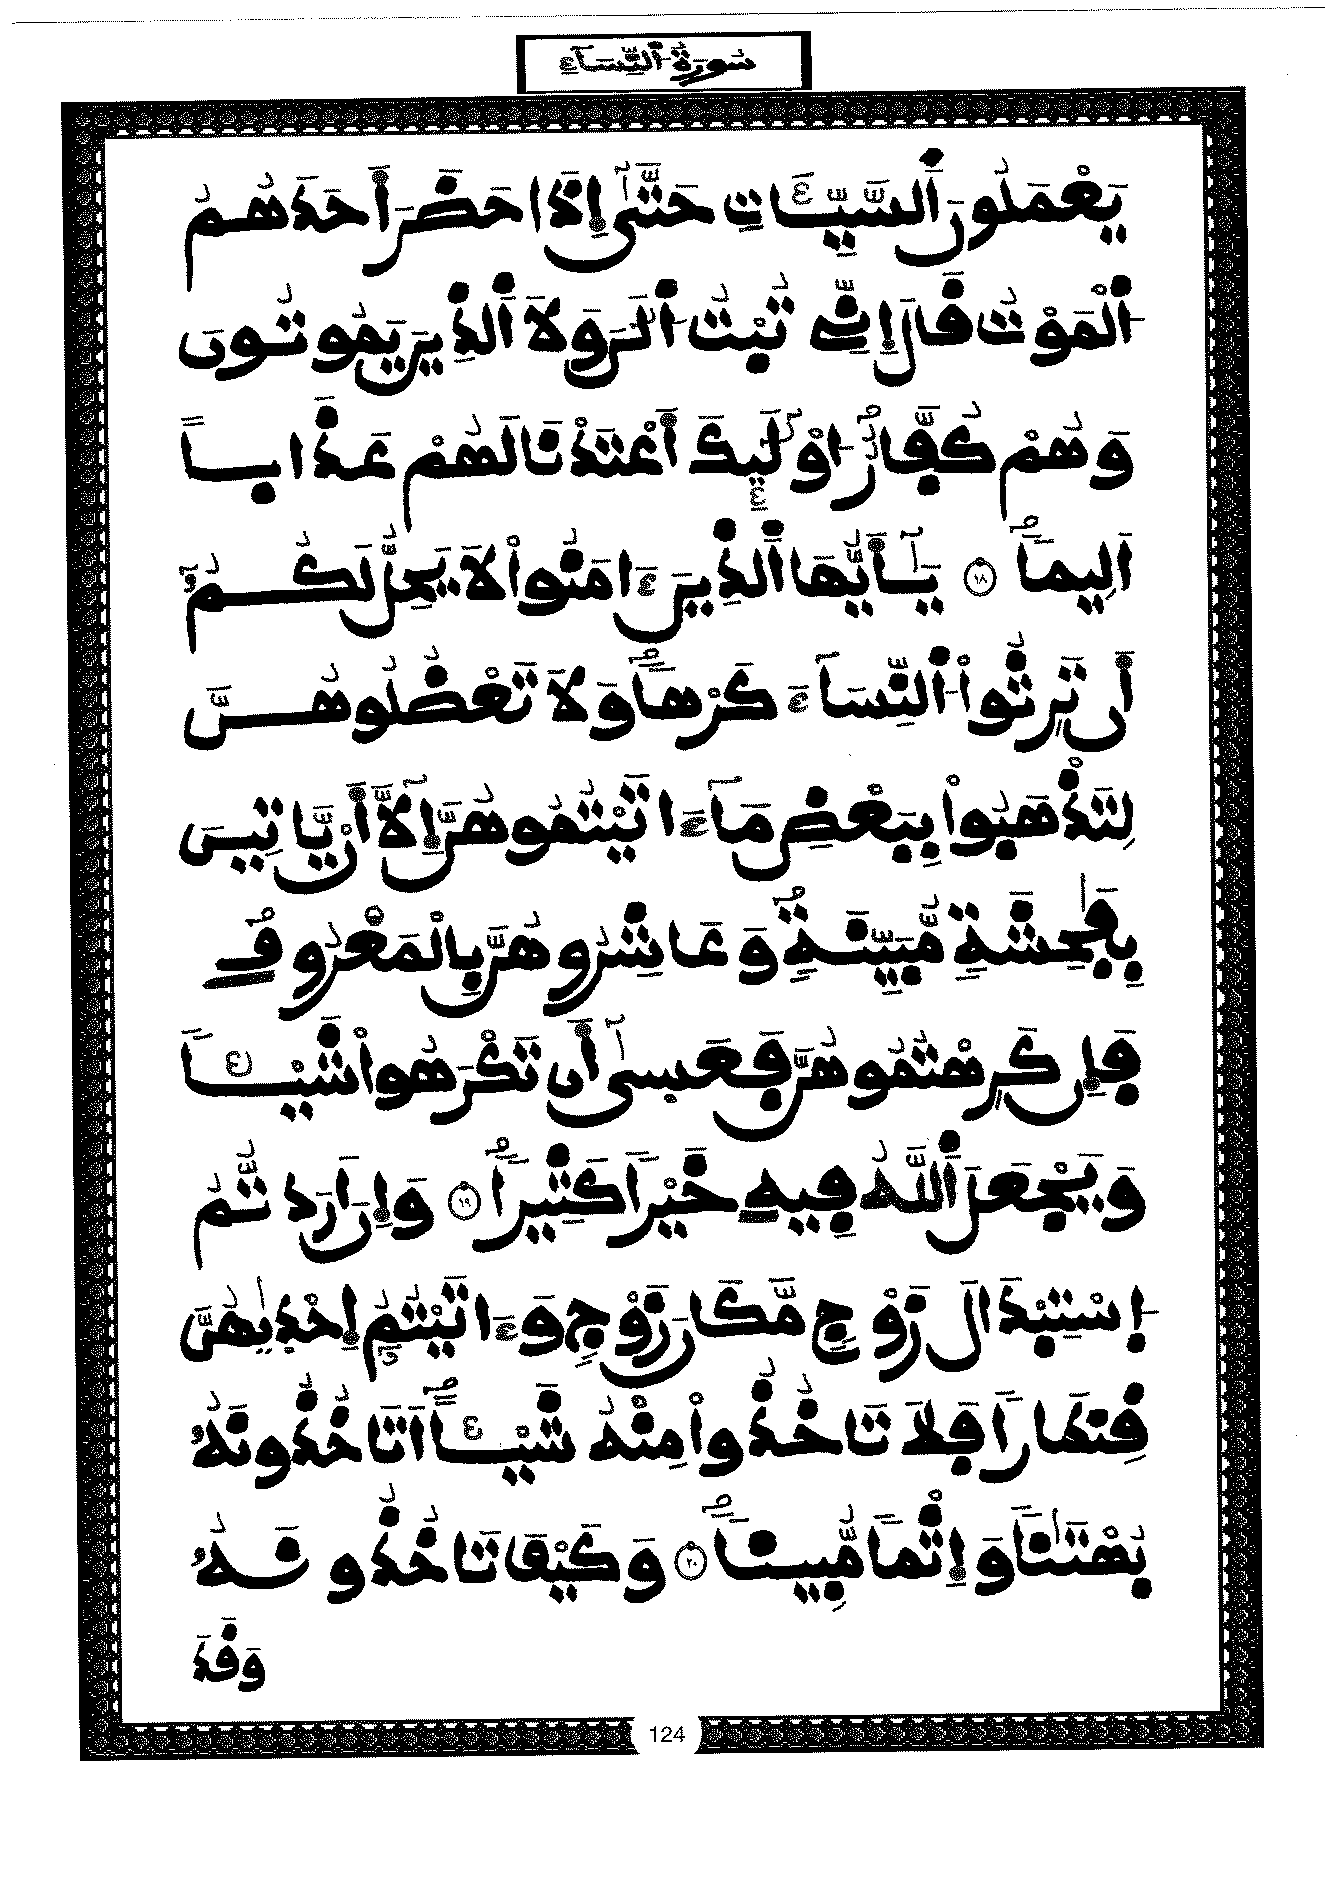 سُورَةُ اُ۬لنِّسَآءِ
يَعْمَلُونَ اَ۬لسَّيِّـَٔاتِ حَتَّىٰٓ إِذَا حَضَرَ أَحَدَهُمُ
اُ۬لْمَوْتُ قَالَ إِنِّے تُبْتُ اُ۬لَٰنَ وَلَا اَ۬لذِينَ يَمُوتُونَ
وَهُمْ كُفَّارٌ ا۟وْلَٰٓئِكَ أَعْتَدْنَا لَهُمْ عَذَاباً
اَلِيماٗ ١٨ يَٰٓأَيُّهَا اَ۬لذِينَ ءَامَنُواْ لَا يَحِلُّ لَكُمُۥٓ
أَن تَرِثُواْ اُ۬لنِّسَآءَ كَرْهاٗ وَلَا تَعْضُلُوهُنَّ
لِتَذْهَبُواْ بِبَعْضِ مَآ ءَاتَيْتُمُوهُنَّ إِلَّآ أَنْ يَّاتِينَ
بِفَٰحِشَةٖ مُّبَيَّنَةٖ وَعَاشِرُوهُنَّ بِالْمَعْرُوفِ
فَإِن كَرِهْتُمُوهُنَّ فَعَسَىٰٓ أَن تَكْرَهُواْ شَيْـٔاٗ
وَيَجْعَلَ اَ۬للَّهُ فِيهِ خَيْراٗ كَثِيراٗ ١٩ وَإِنَ اَرَدتُّمُ
اُ۪سْتِبْدَالَ زَوْجٖ مَّكَانَ زَوْجٖ وَءَاتَيْتُمُۥٓ إِحْد۪يٰهُنَّ
قِنطَاراٗ فَلَا تَاخُذُواْ مِنْهُ شَيْـٔاً اَتَاخُذُونَهُۥ
بُهْتَٰناٗ وَإِثْماٗ مُّبِيناٗ ٢٠ وَكَيْفَ تَاخُذُونَهُۥ
وَقَدَ
124